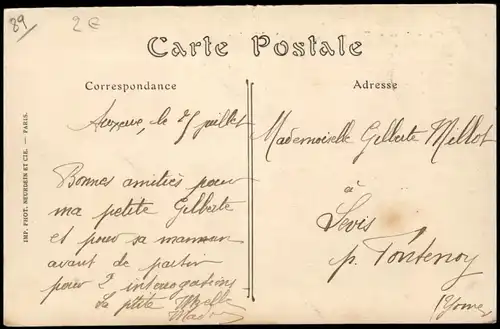 89
2 €
Carte Postale
Correspondance
Adresse
Auxerre, le 25 juillet
Bonnes amitiés pour
ma petite Gilberte
et pour sa maman
avant de partir
pour 2 interrogations
Sa ptite
Mademoiselle Gilberte Millot
à
Levis
p. Fontenoy
(Yonne)
IMP. PHOT. NEURDEIN ET CIE. — PARIS.